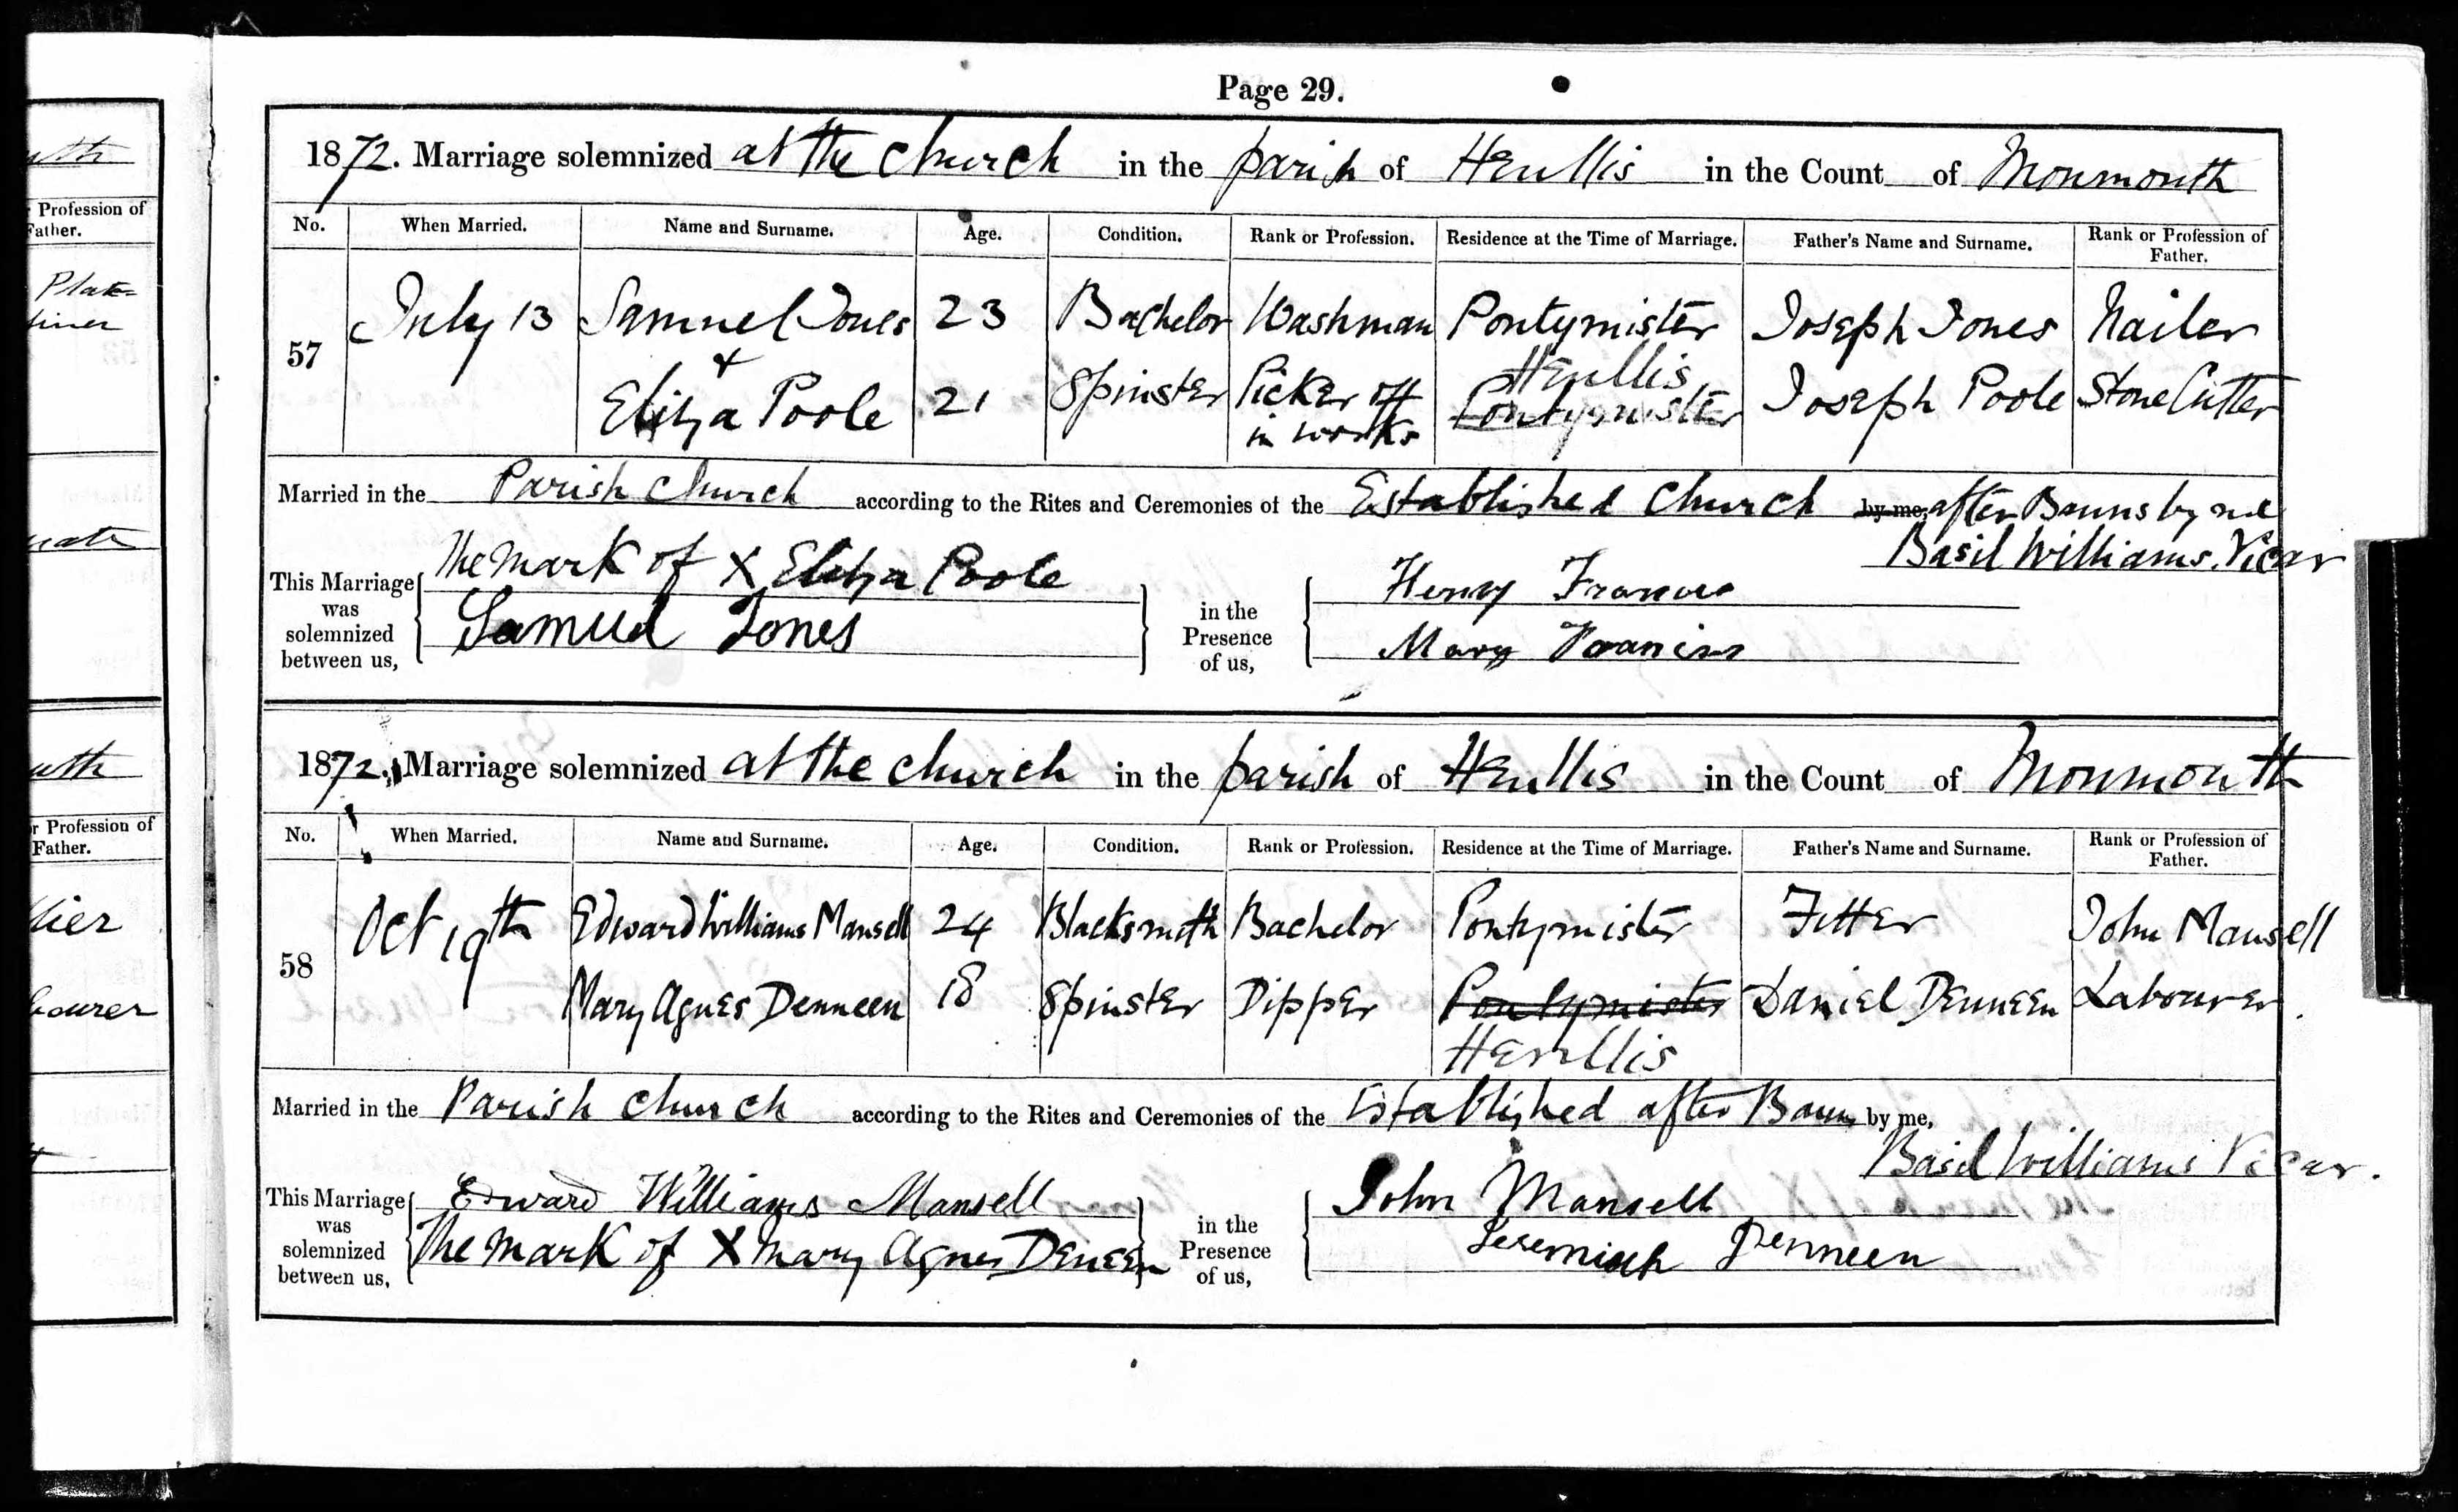 Page 29.
1872. Marriage solemnized at the church in the parish of Henllis in the Count of Monmouth
No. When Married. Name and Surname. Age. Condition. Rank or Profession. Residence at the Time of Marriage. Father's Name and Surname. Rank or Profession of Father.
57 July 13 Samuel Jones 23 Bachelor Washman Pontymister Joseph Jones Nailer
& Henllis
Eliza Poole 21 Spinster Picker off in works Pontymister Joseph Poole Stone Cutter
Married in the Parish church according to the Rites and Ceremonies of the Established Church by me, after Banns by me
Basil Williams. Vicar
This Marriage was solemnized between us, The mark of X Eliza Poole
Samuel Jones
in the Presence of us, Henry Francis
Mary Francis
1872. Marriage solemnized at the church in the parish of Henllis in the Count of Monmouth
No. When Married. Name and Surname. Age. Condition. Rank or Profession. Residence at the Time of Marriage. Father's Name and Surname. Rank or Profession of Father.
58 Oct 19th Edward Williams Mansell 24 Blacksmith Bachelor Pontymister Fitter John Mansell
Mary Agnes Denneen 18 Spinster Dipper Pontymister Daniel Denneen Labourer
Henllis
Married in the Parish church according to the Rites and Ceremonies of the Established after Banns by me,
Basil Williams Vicar.
This Marriage was solemnized between us, Edward Williams Mansell
The mark of X Mary Agnes Deneen
in the Presence of us, John Mansell
Jeremiah Denneen
Profession of
Father.
Profession of
Father.